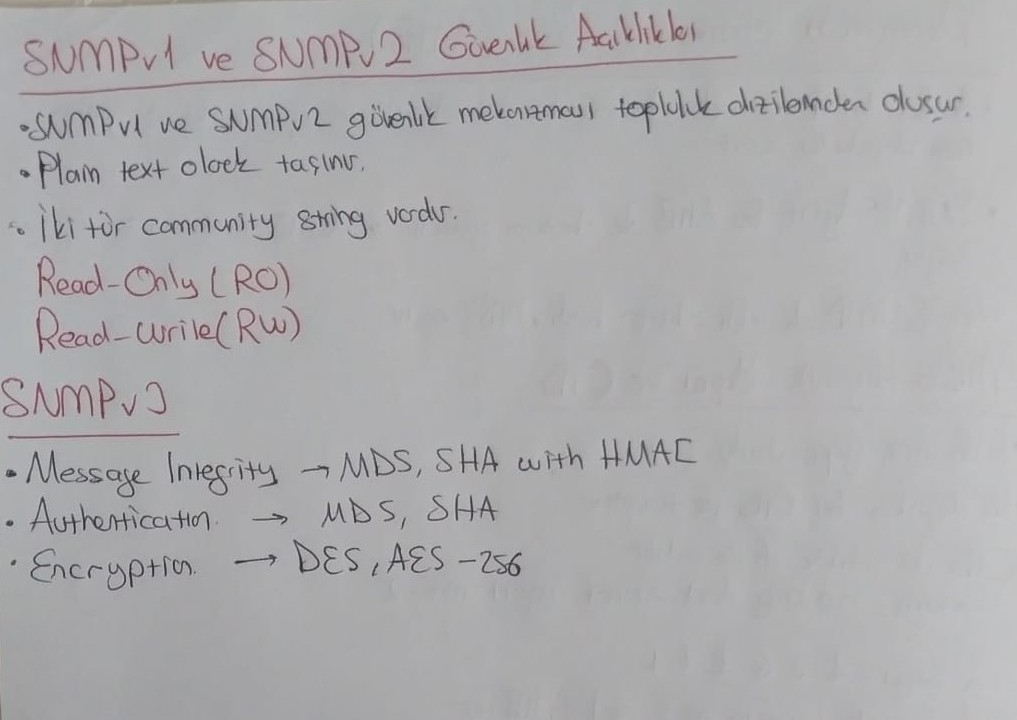 SNMPv1 ve SNMPv2 Güvenlik Açıklıkları
• SNMPv1 ve SNMPv2 güvenlik mekanizması topluluk dizilerinden oluşur.
• Plain text olarak taşınır.
• İki tür community string vardır.
Read-Only (RO)
Read-write (RW)
SNMPv3
• Message Integrity → MD5, SHA with HMAC
• Authentication → MD5, SHA
• Encryption → DES, AES-256